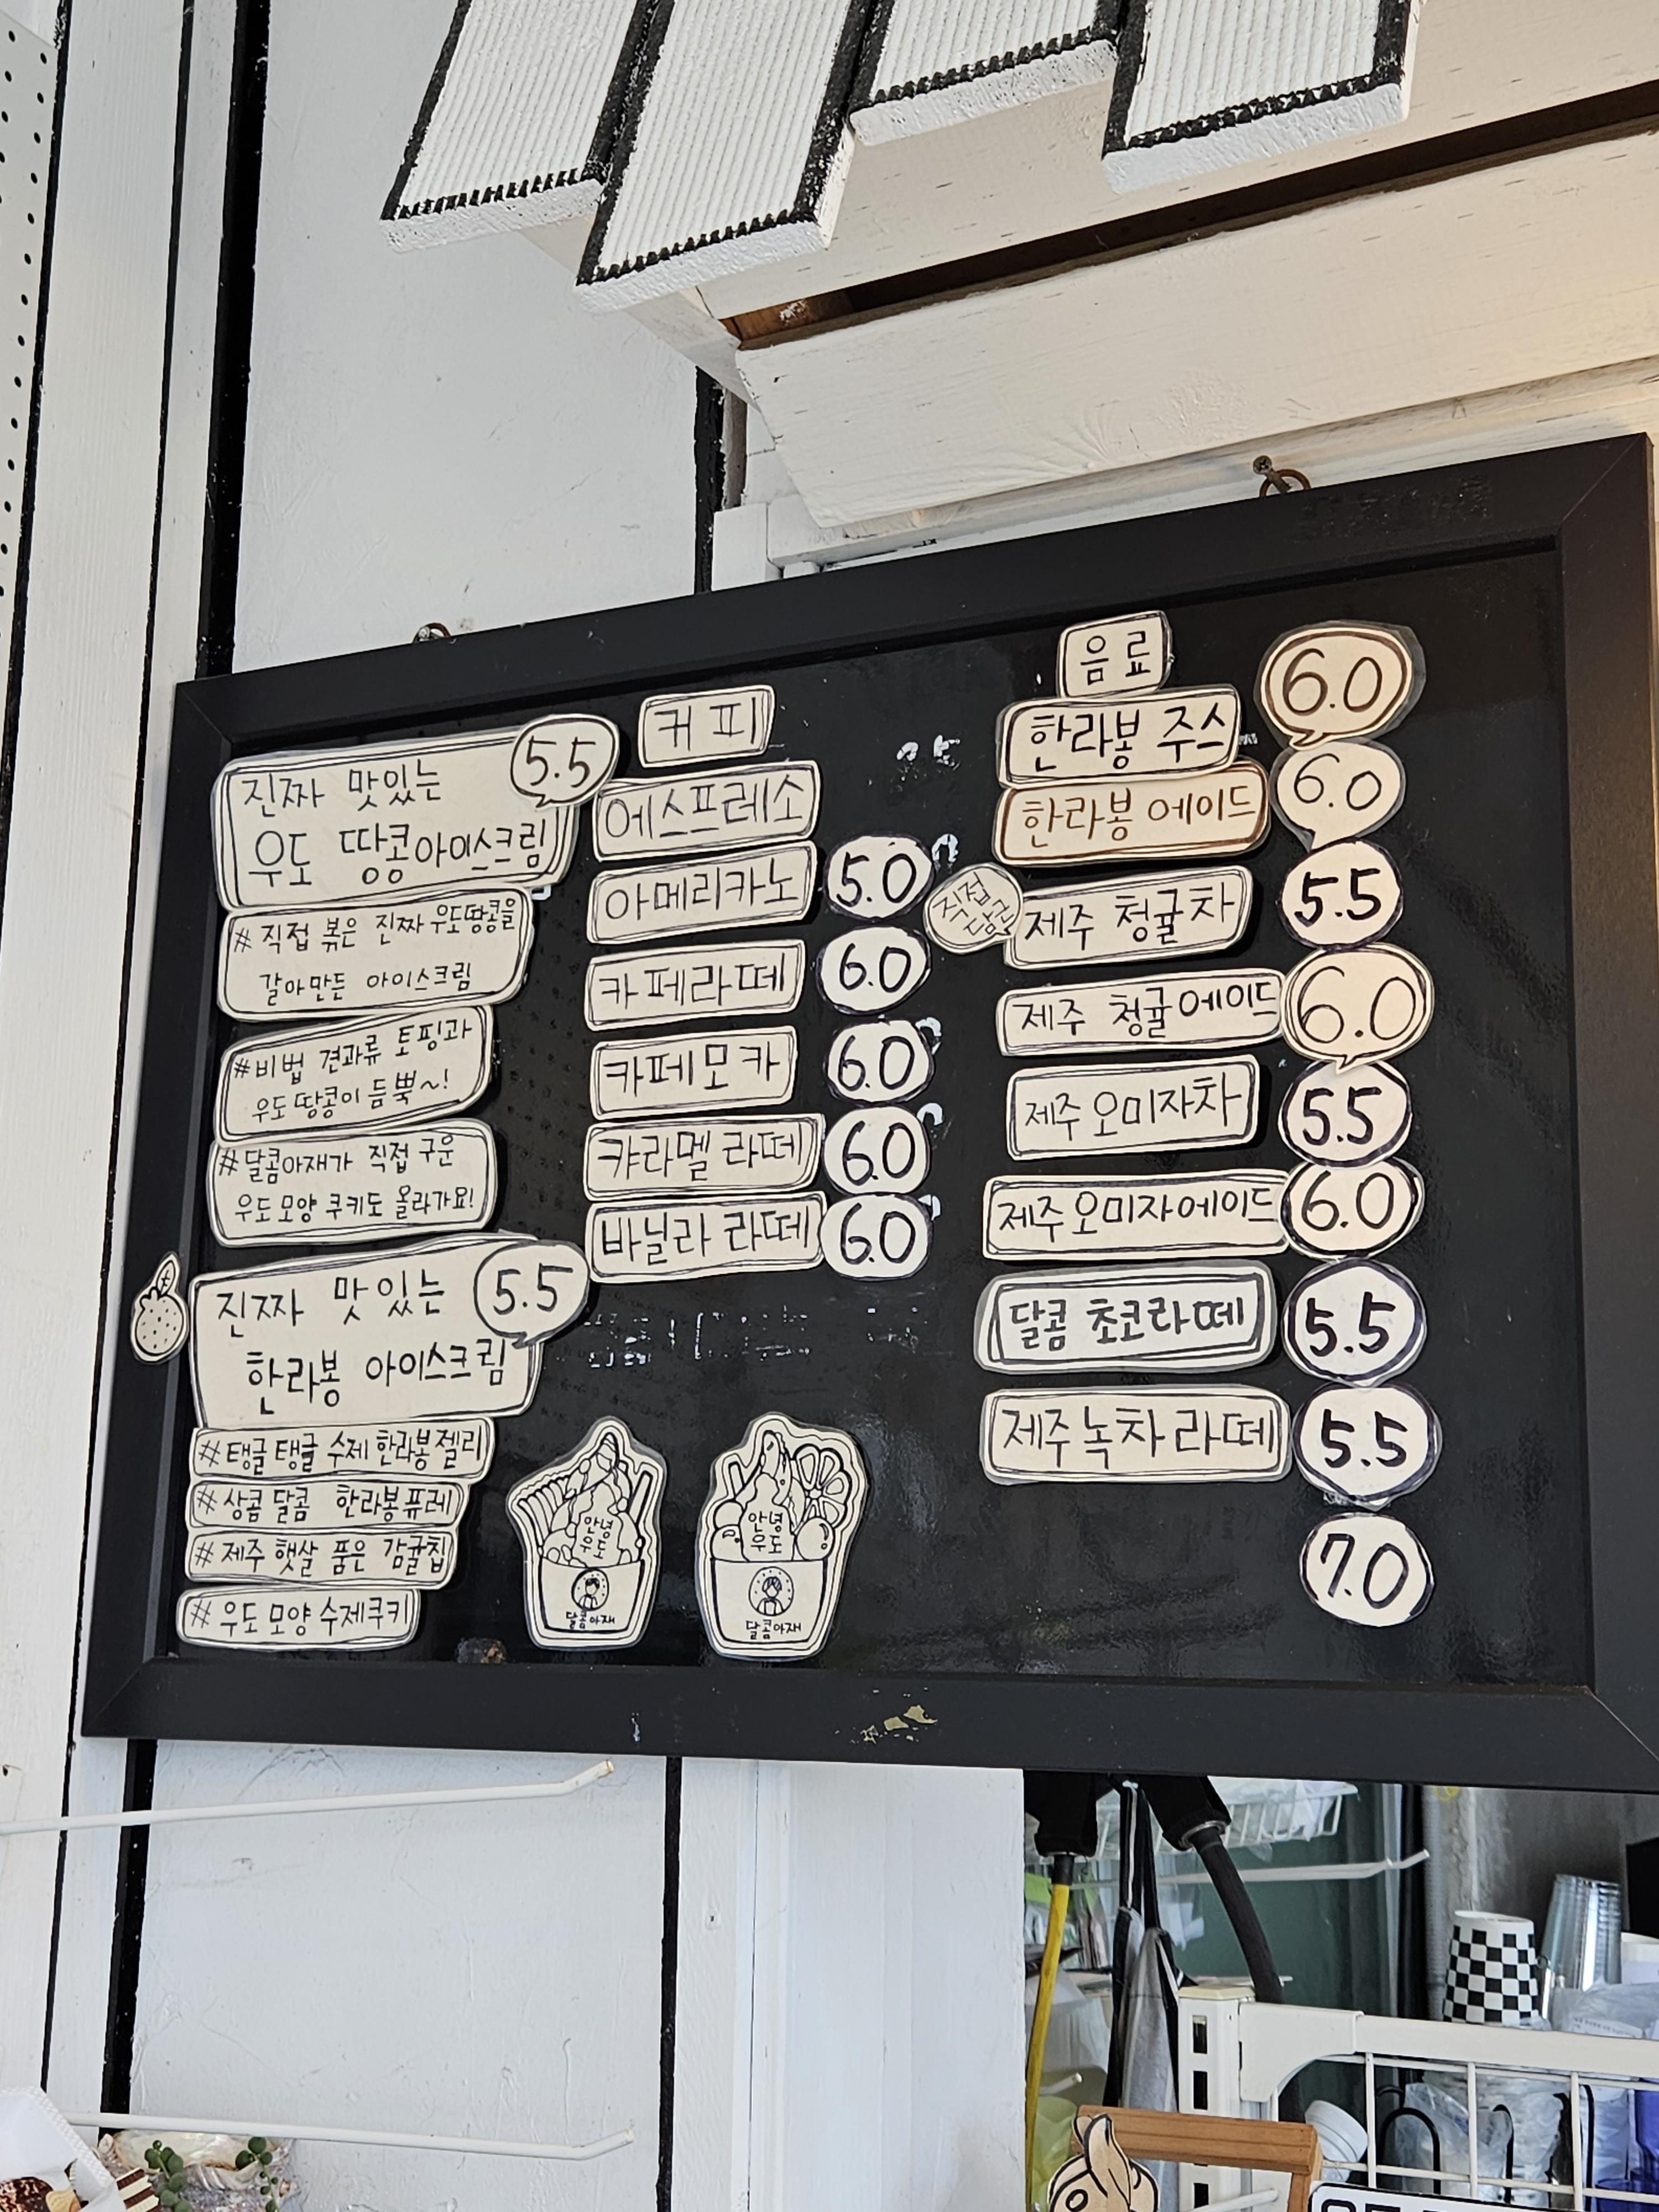 진짜 맛있는 5.5
우도 땅콩아이스크림
# 직접 볶은 진짜 우도땅콩을
갈아만든 아이스크림
# 비법 견과류 토핑과
우도 땅콩이 듬뿍~!
# 달콤아재가 직접 구운
우도 모양 쿠키도 올라가요!
진짜 맛있는 5.5
한라봉 아이스크림
# 탱글탱글 수제 한라봉젤리
# 상콤 달콤 한라봉퓨레
# 제주 햇살 품은 감귤칩
# 우도 모양 수제쿠키
커피
에스프레소
아메리카노 5.0
카페라떼 6.0
카페모카 6.0
캬라멜 라떼 6.0
바닐라 라떼 6.0
안녕
우도
달콤아재
안녕
우도
달콤아재
음료
한라봉 주스 6.0
한라봉 에이드 6.0
직접
담근
제주 청귤차 5.5
제주 청귤에이드 6.0
제주오미자차 5.5
제주오미자에이드 6.0
달콤 초코라떼 5.5
제주녹차라떼 5.5
7.0